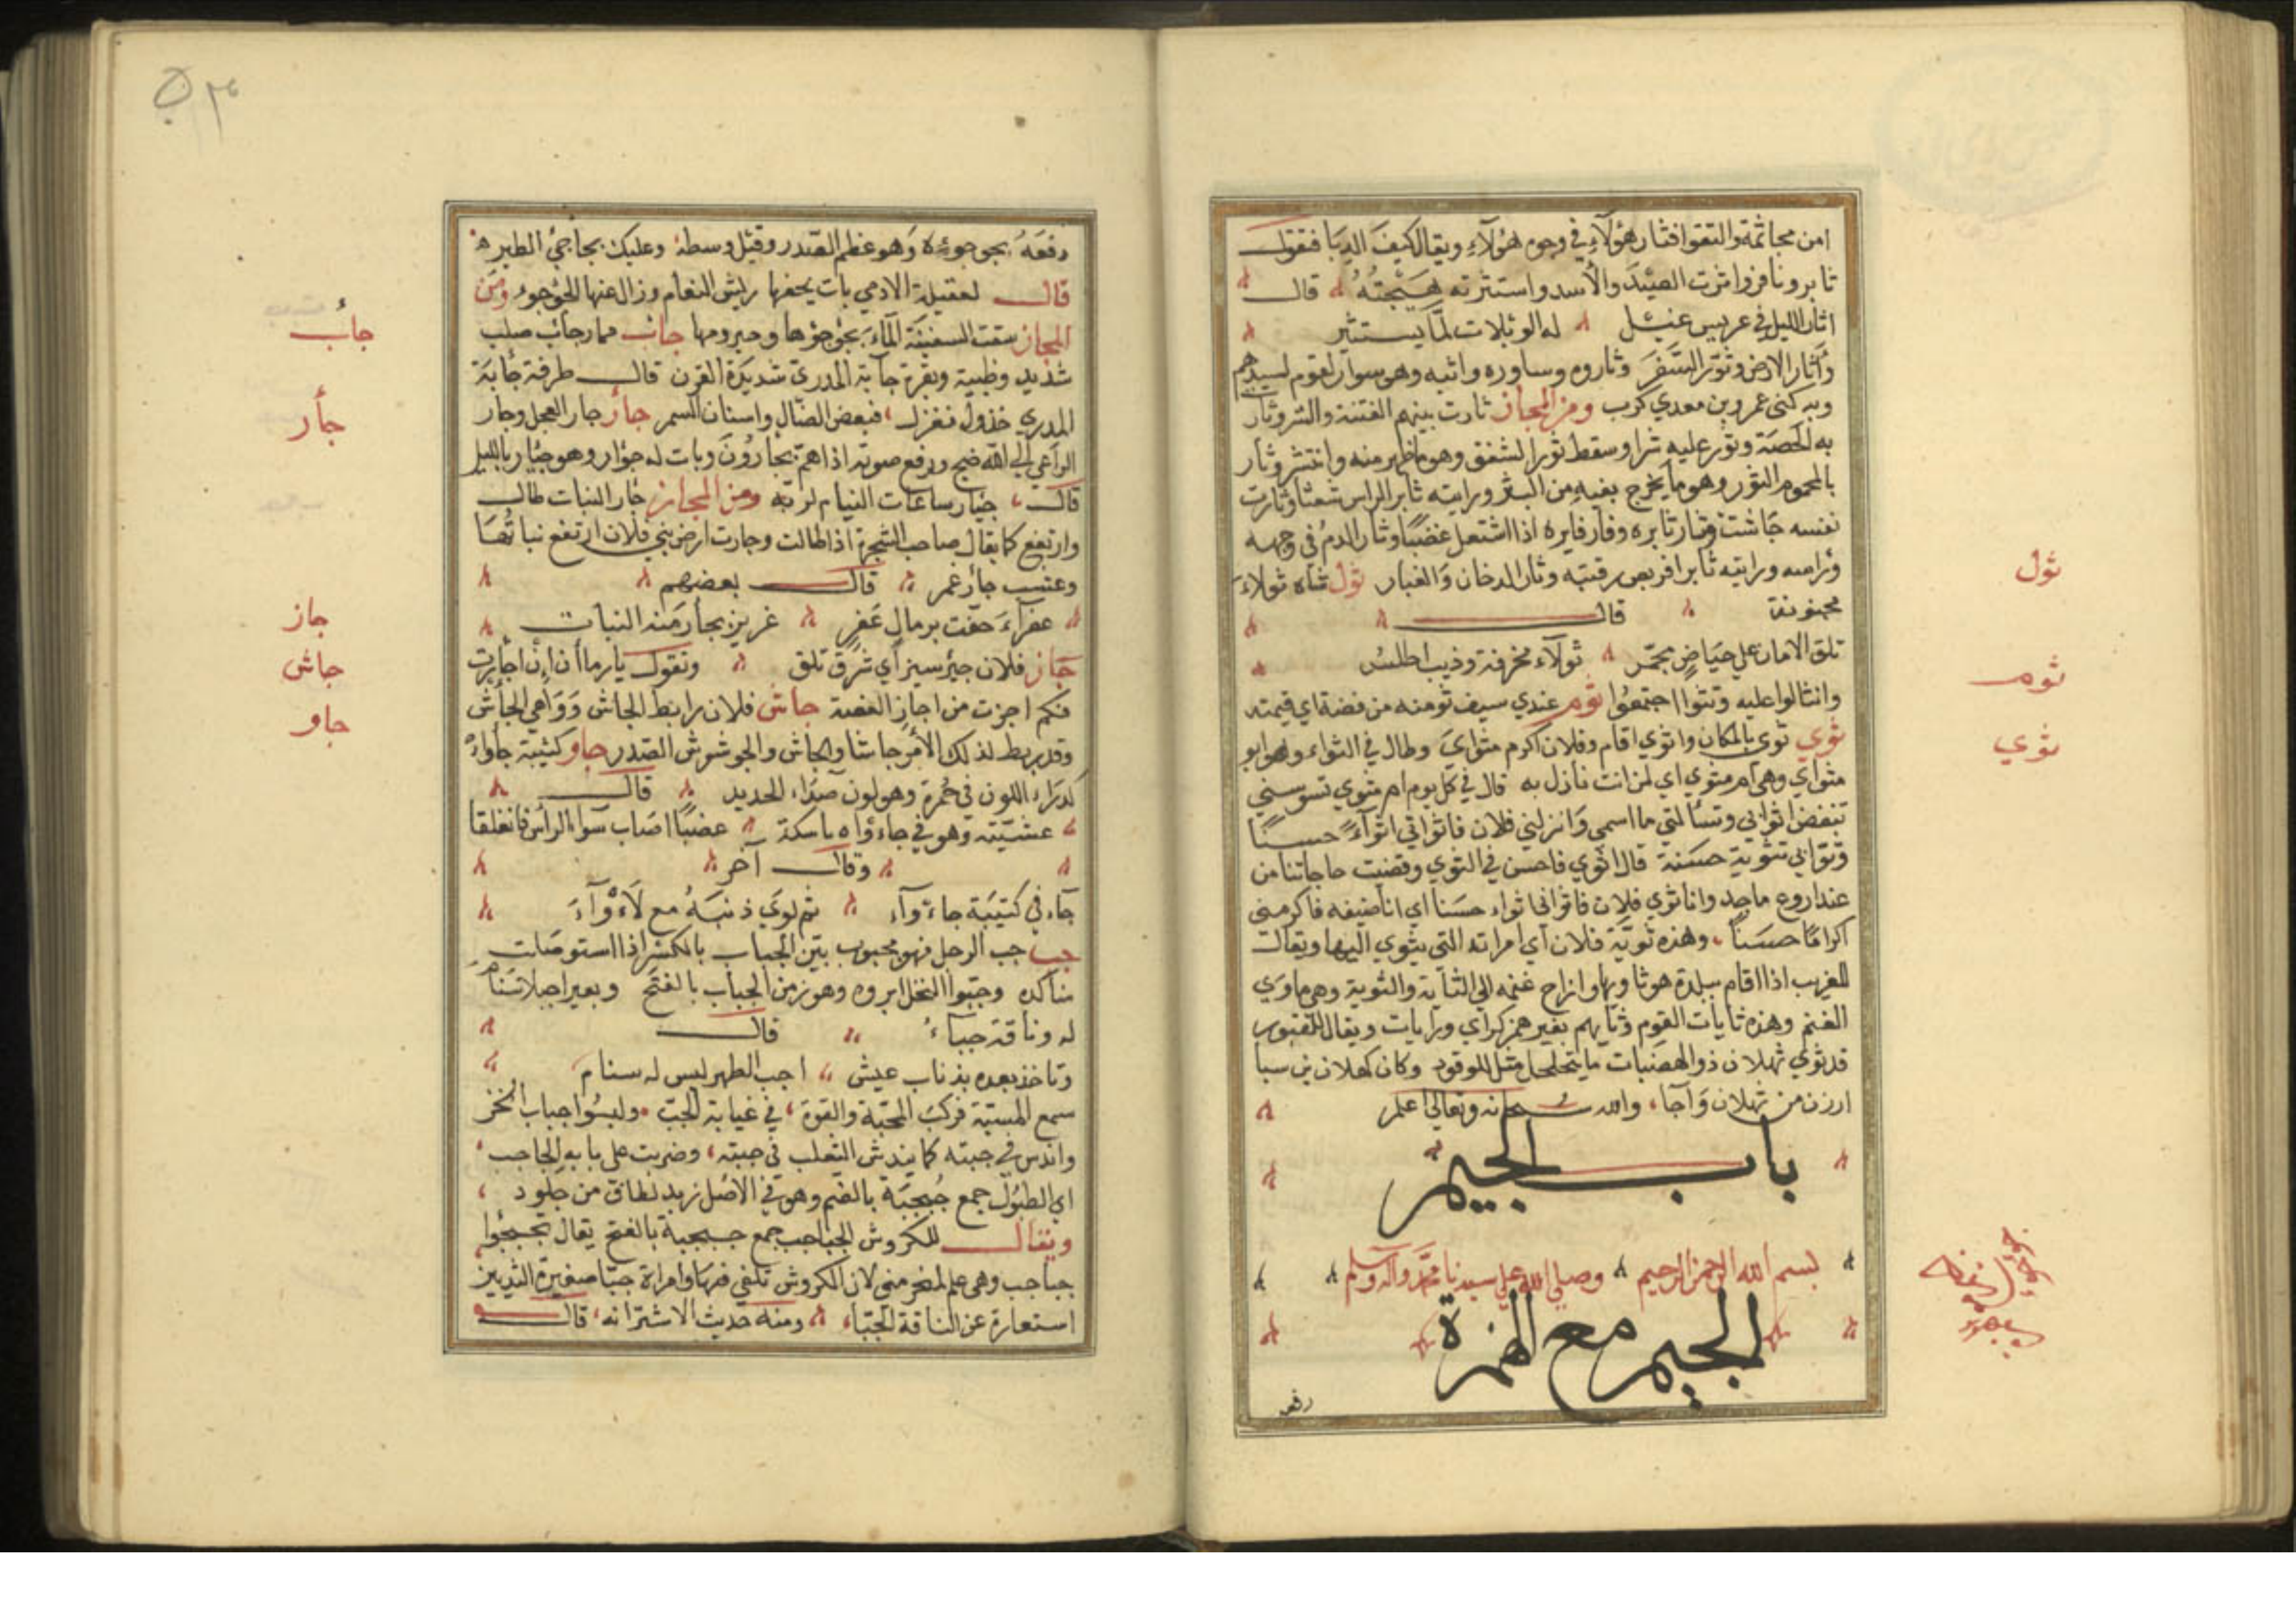 امن مجاثمة والتقوا فثار هؤلاء في وجوه هؤلاء ويقال كيف الدبا فتقول
ثاير ونافر واثرت الصيد والأسد واستثرته هيجته قال
اثار الليل في عريس غيل له الويلات لما يستثير
وأثار الارض وثور السفر وثاروه وساوره واثبه وهو سوار لقوم لسيدهم
وبه كنى عمرو بن معدي كرب ومن المجاز ثارت بينهم الفتنة والشر وثار
به الحصبة وثور عليه شرا وسقط ثور الشفق وهو ما ظهر منه وانتشر وثار
بالمحموم الثور وهو ما يخرج بفيه من البثر ورايته ثاير الراس شعثا وثارت
نفسه جاشت وثار ثايره وفار فايره اذا اشتعل غضبا وثار الدم في وجهه
ورايته ثاير افريص رقبته وثار الدخان والغبار ثول شاة ثولاء
مجنونة قال
تلق الامان على حياض محمد ثولاء مخرفة وذيب اطلس
وانثالوا عليه اجتمعوا ثوم عندي سيف ثومته من فضة اي قبيعته
ثوي ثوى بالمكان واثوى اقام وفلان اكرم مثواي وطال في الثواء وهو ابو
مثواي وهي ام مثوي اي لمن انت نازل به قال في كل يوم ام مثوى تسوسني
تنفض اثوابي وتسألتي ما اسمي وانزلني فلان فاثواني اثواء حسنا
وثواني تثوية حسنة قال اثوي فاحسن في الثوي وقضيت حاجاتنا من
عند اروع ماجد وانا ثوي فلان فاثواني ثواء حسنا اي انا ضيفه فاكرمني
اكراما حسنا وهذه ثوية فلان اي امراته التي يثوي اليها ويقال
للغريب اذا اقام ببلدة هو ثاويها واراح غنمه الى الثاية والثوية وهي ماوى
الغنم وهذه ثايات القوم وثايهم بغير همز كراي ورايات ويقال للمقبور
قد ثوي ثهلان ذو الهضبات ما يتحلحل مثل للوقور وكان كهلان بن سبا
ارزن من ثهلان وآجاء والله سبحانه وتعالى اعلم
باب الجيم
بسم الله الرحمن الرحيم وصلى الله على سيدنا محمد وآله وسلم
الجيم مع الهمزة
رفعه
ثول
ثوم
ثوي
دفعه بجوجوئه وهو عظم الصدر وقيل وسطه وعليك بجاجئ الطير
قال لعقيلة الادحي بات يحفها ريش النعام وزال عنها الجوجوء ومن
المجاز شقت السفينة الماء بجوجوها وحيزومها جاب حمار جاب صلب
شديد وظبية وبقرة جابة المدرى شديدة القرن قال طرفة جابة
المدري خذول فغزل فبعض الضال واسنان السمر جأر جار العجل وجار
الراعي الى الله ضج ورفع صوته اذا هم يجأرون وبات له جؤار وهو جئار بالليل
قال جئار ساعات النيام لربه ومن المجاز جار النبات طال
وارتفع كما يقال صاحب الشجرة اذا طالت وجارت ارض بني فلان ارتفع نباتها
وعشب جار غمر قال بعضهم
عفراء حفت برمال عفر غريز يجار منه النبات
جاز فلان جيز سيز اي شرق تلق وتقول يارماان ان اجازت
فكم اجزت من اجاز الغصة جاش فلان رابط الجاش وواهي الجأش
وقد ربط لذلك الأمر جاشا والجاش والجوشوش الصدر جاو كتيبة جأواء
كدراء اللون في حمرة وهو لون صداء الحديد قال
عشيته وهو في جاءواه باسكة عضبا اصاب سواء الرأس فانفلقا
وقال آخر
جاء في كتيبة جاءوآء ثم لوى ذنبه مع لأوآء
جب جب الرجل فهو مجبوب بين الجباب بالكسر اذا استوصلت
مذاكره وجبوا النخل ابروه وهو زمن الجباب بالفتح وبعير اجب لا سنام
له وناقة جباء قال
وتاخذ بعده بذناب عيش اجب الظهر ليس له سنام
سمع المسبة فركب المجبة والقوة في غيابة الجب ولبسوا جباب الخز
واندس في جبته كما يندس الثعلب في جبته وضربت على بابه الجباجب
اي الطبول جمع جبجبة بالضم وهو في الاصل زبد لطاق من جلود
ويقال للكروش الجباجب جمع جبجبة بالفتح يقال تجبجبوا
جباجب وهي علم لمنحر منى لان الكروش تلقى فيها وامراة جبا صغيرة الثديين
استعارة عن الناقة الجباء ومنه حديث الاشتر انه قال
جاب
جأر
جاز
جاش
جاو